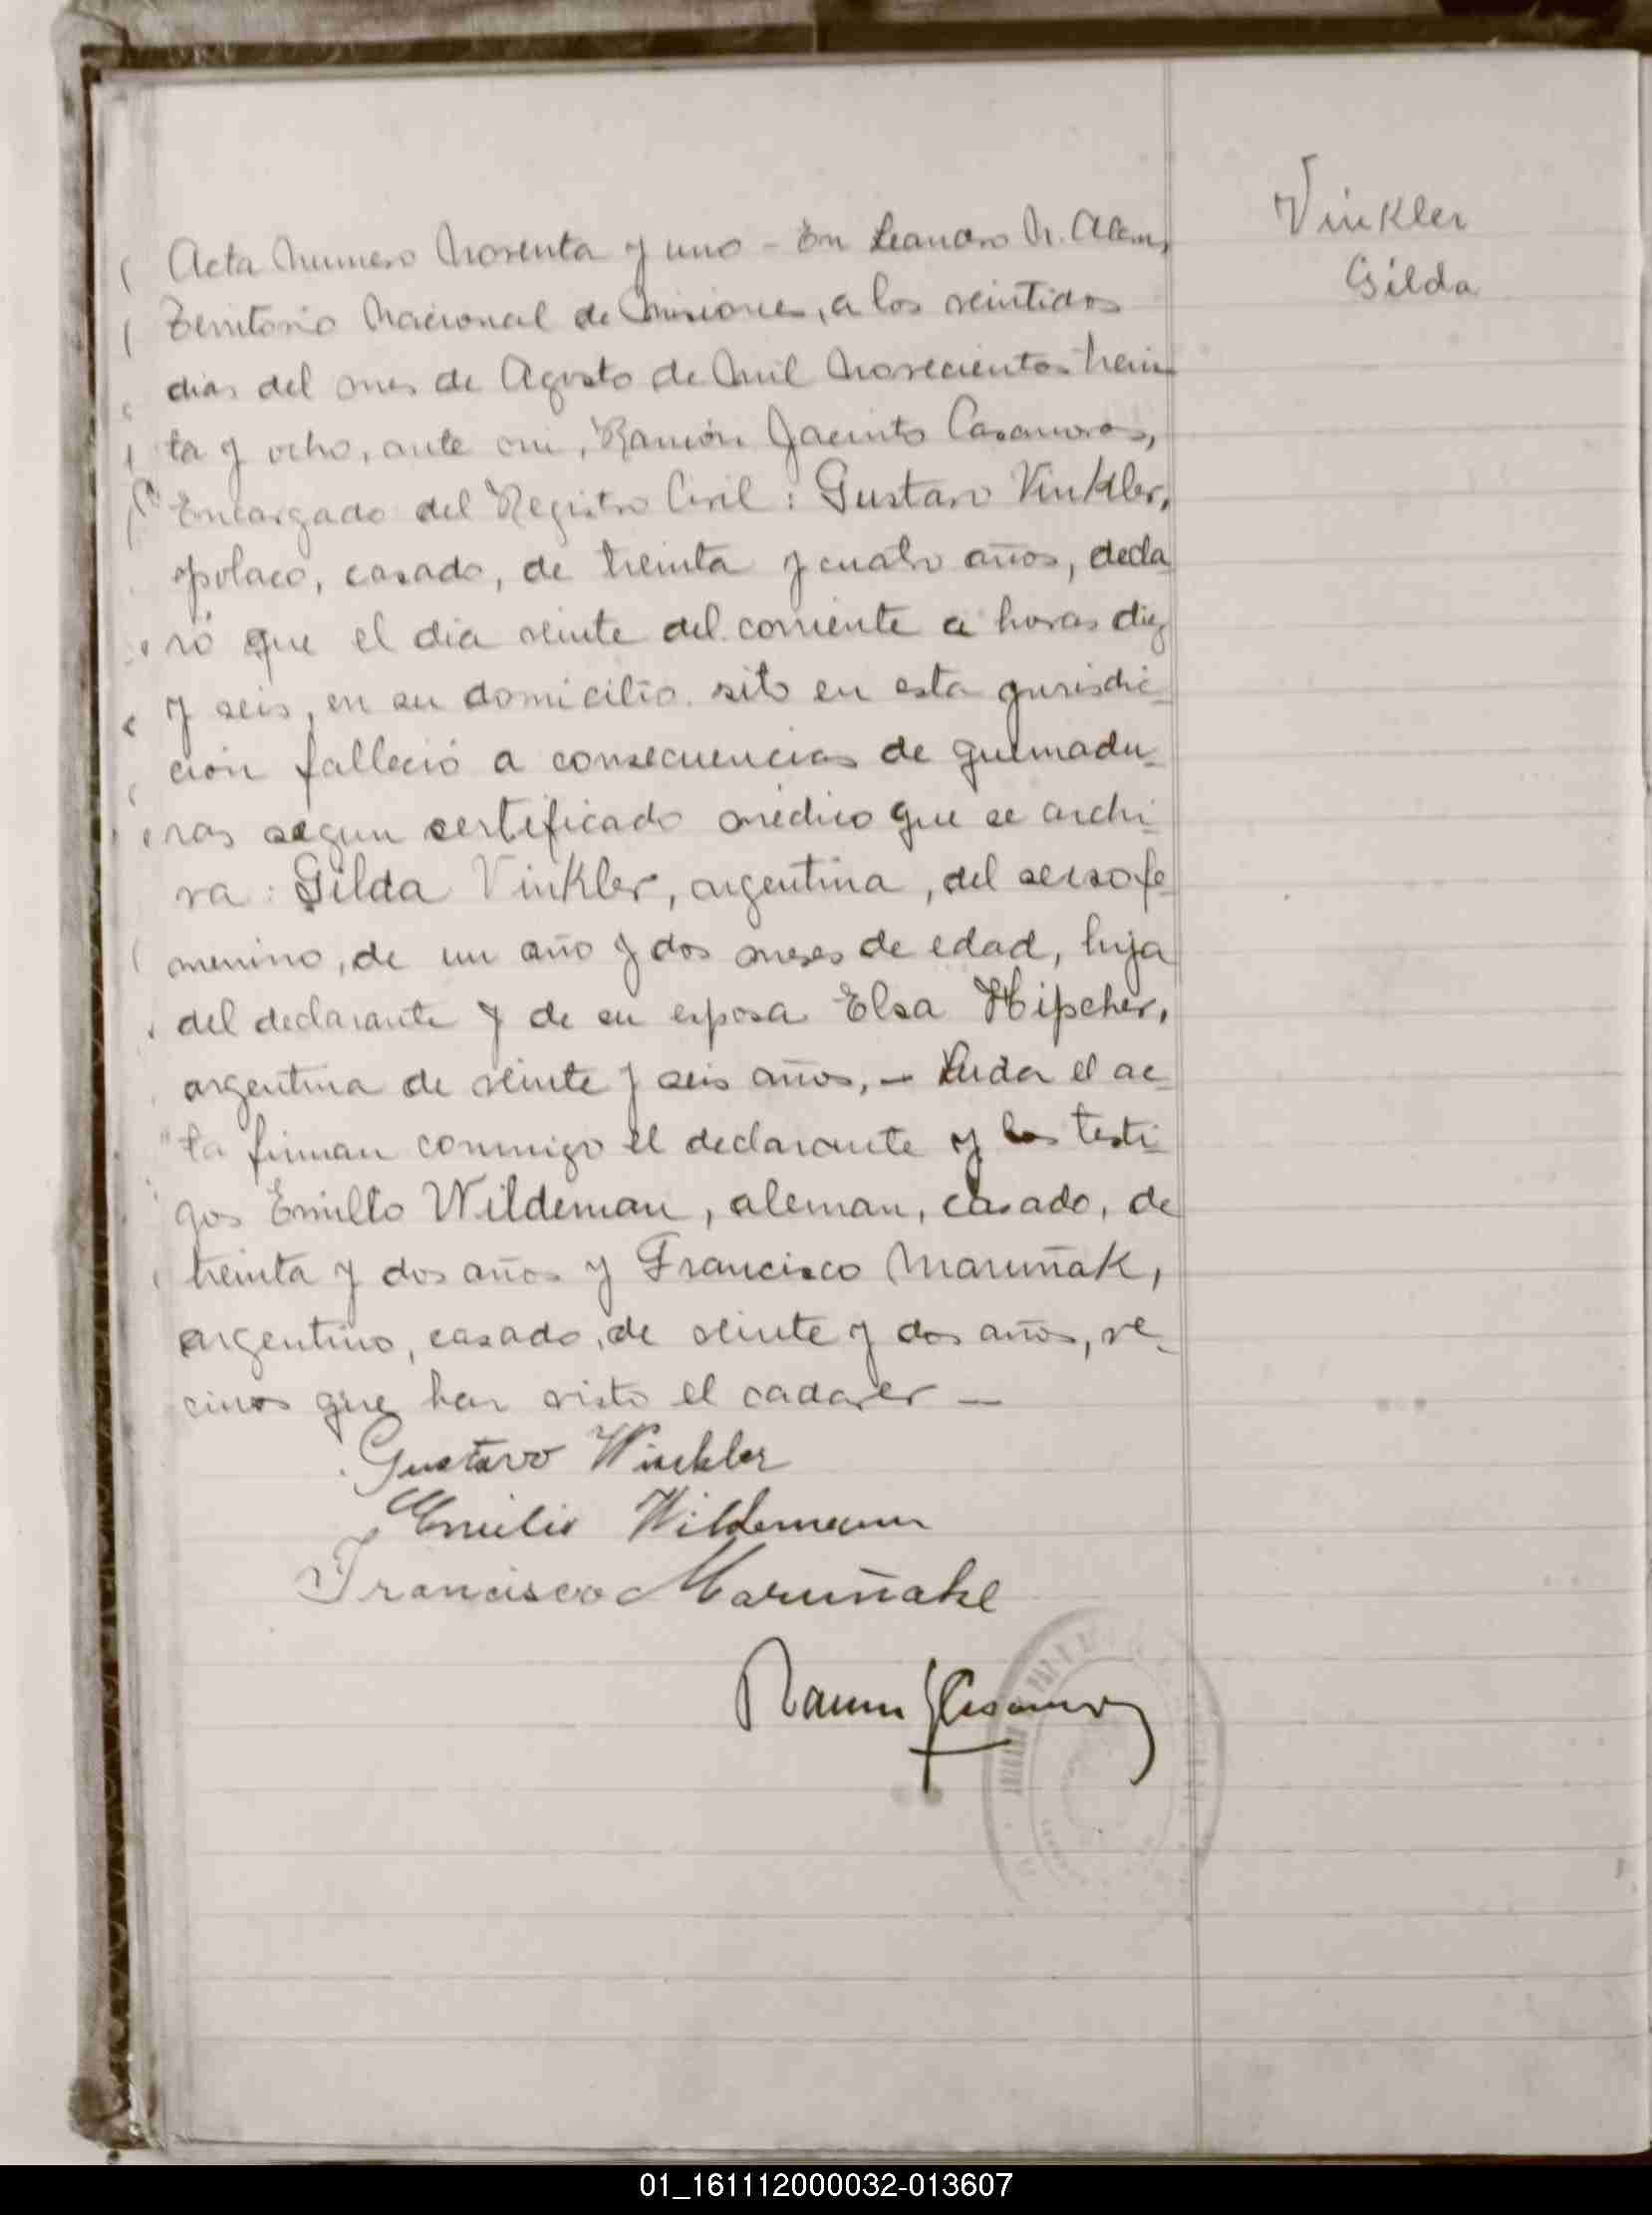 Vinkler
Gilda
Acta Numero Noventa y uno - En Leandro N. Alem,
Territorio Nacional de Misiones, a los veintidos
dias del mes de Agosto de Mil Novecientos trein
ta y ocho, ante mi, Ramón Jacinto Casanovas,
Encargado del Registro Civil: Gustavo Vinkler,
polaco, casado, de treinta y cuatro años, decla
ró que el dia veinte del corriente a horas diez
y seis, en su domicilio sito en esta jurisdic-
ción falleció a consecuencias de quemadu-
ras segun certificado médico que se archi-
va: Gilda Vinkler, argentina, del sexso fe
menino, de un año y dos meses de edad, hija
del declarante y de su esposa Elsa Hipcher,
argentina de veinte y seis años, - Leida el ac-
ta firman conmigo el declarante y los testi-
gos Emilio Wildeman, aleman, casado, de
treinta y dos años y Francisco Maruñak,
argentino, casado, de veinte y dos años, ve-
cinos que han visto el cadaver -
Gustavo Winkler
Emilio Wildemann
Francisco Maruñak
Ramon J Casanovas
01_161112000032-013607